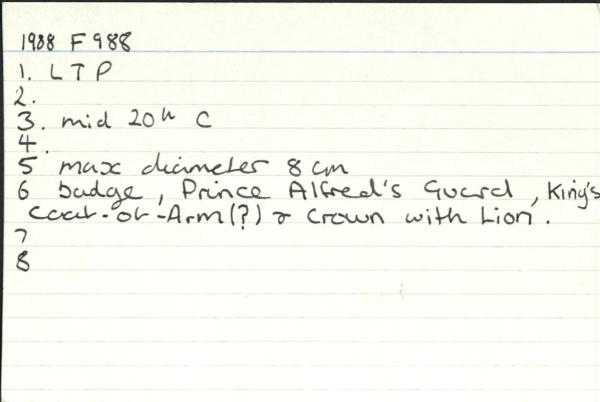 1988 F 988
1. L T P
2.
3. mid 20th C
4.
5 max diameter 8 cm
6 badge, Prince Alfred's Guard, King's
Coat-of-Arm(?) & Crown with Lion.
7
8